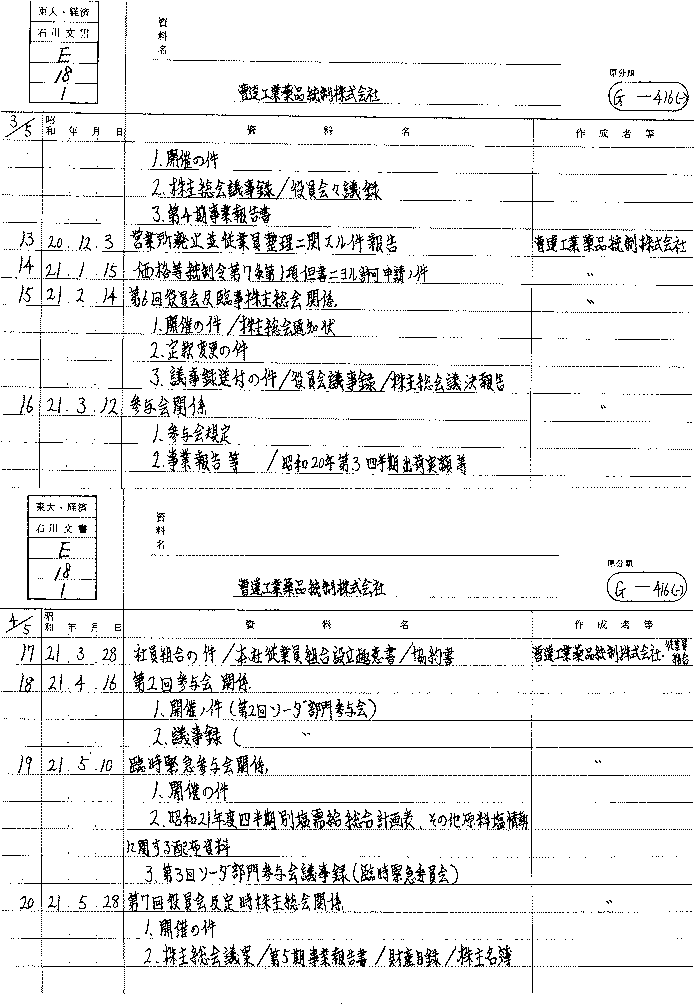 東大・経済
石川文書
E
18
1
資料名
曹達工業薬品統制株式会社
原分類
G-416(-)
3/5
昭和 年 月 日 資料名 作成者等
1.開催の件
2.株主総会議事録/役員会々議録
3.第4期事業報告書
13 20.12.3 営業所廃止並従業員整理ニ関スル件報告 曹達工業薬品統制株式会社
14 21.1.15 価格等統制令第7条第1項但書ニヨル許可申請ノ件 〃
15 21.2.14 第6回役員会及臨事株主総会関係 〃
1.開催の件/株主総会通知状
2.定款変更の件
3.議事録送付の件/役員会議事録/株主総会議決報告
16 21.3.12 参与会関係 〃
1.参与会規定
2.事業報告等 /昭和20年第3四半期出荷実額等
東大・経済
石川文書
E
18
1
資料名
曹達工業薬品統制株式会社
原分類
G-416(-)
4/5
昭和 年 月 日 資料名 作成者等
17 21.3.28 社員組合の件/本社従業員組合設立趣意書/協約書 曹達工業薬品統制株式会社・従業員組合
18 21.4.16 第2回参与会関係
1.開催ノ件(第2回ソーダ部門参与会)
2.議事録( 〃
19 21.5.10 臨時緊急参与会関係 〃
1.開催の件
2.昭和21年度四半期別塩需給総合計画表、その他原料塩情勢
に関する配布資料
3.第3回ソーダ部門参与会議事録(臨時緊急委員会)
20 21.5.28 第7回役員会及定時株主総会関係 〃
1.開催の件
2.株主総会議案/第5期事業報告書/財産目録/株主名簿